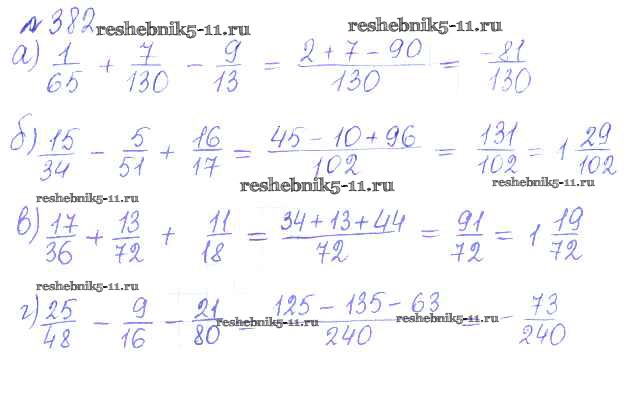 № 382 reshebnik5-11.ru reshebnik5-11.ru
а) 1/65 + 7/130 - 9/13 = (2 + 7 - 90)/130 = -81/130
б) 15/34 - 5/51 + 16/17 = (45 - 10 + 96)/102 = 131/102 = 1 29/102
reshebnik5-11.ru reshebnik5-11.ru reshebnik5-11.ru
в) 17/36 + 13/72 + 11/18 = (34 + 13 + 44)/72 = 91/72 = 1 19/72
reshebnik5-11.ru
г) 25/48 - 9/16 - 21/80 = (125 - 135 - 63)/240 = - 73/240
reshebnik5-11.ru reshebnik5-11.ru